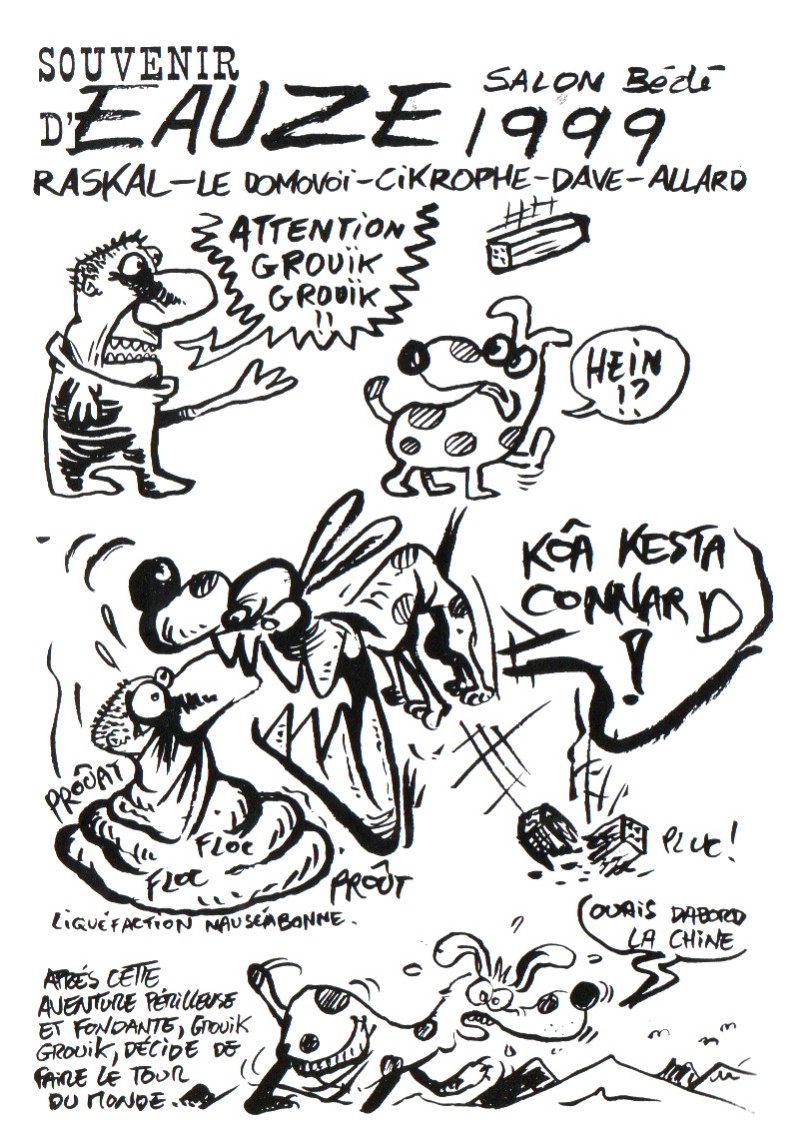 SOUVENIR
D'EAUZE
SALON BéDé
1999
RASKAL-LE DOMOVOÏ-CiKROPHE-DAVE-ALLARD
ATTENTION
GROUÏK
GROUÏK
!!
HEiN
!?
KÔA KESTA
CONNARD
!
PROÛAT
FLOC
FLOC
PROÛT
PLUC!
LIQUÉFACTION NAUSÉABONNE.
OUAIS DABORD
LA CHINE
APRÉS CETTE
AVENTURE PÉRILLEUSE
ET FONDANTE, GROUIK
GROUIK, DÉCIDE DE
FAIRE LE TOUR
DU MONDE...